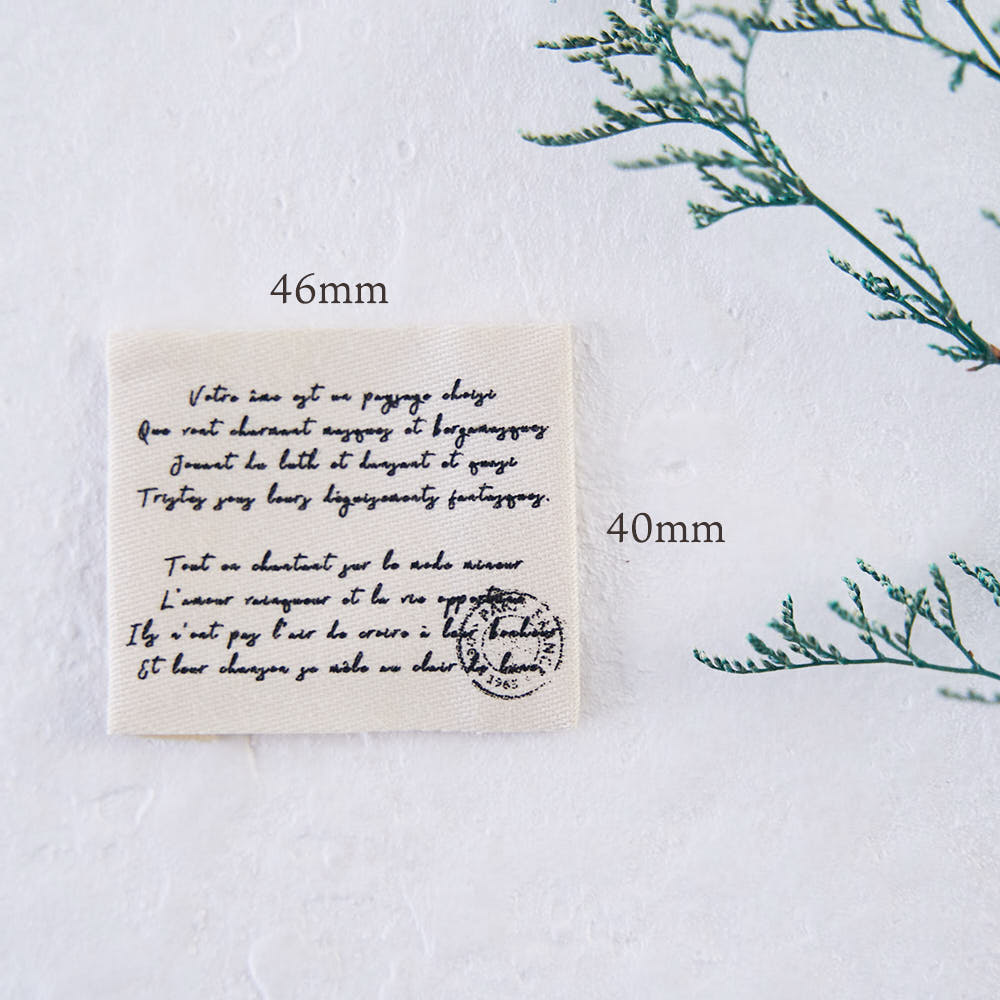 46mm
Votre âme est un paysage choisi
Que vont charmant masques et bergamasques
Jouant du luth et dansant et quasi
Tristes sous leurs déguisements fantasques.
40mm
Tout en chantant sur le mode mineur
L'amour vainqueur et la vie opportune
Ils n'ont pas l'air de croire à leur bonheur
Et leur chanson se mêle au clair de lune,
1965